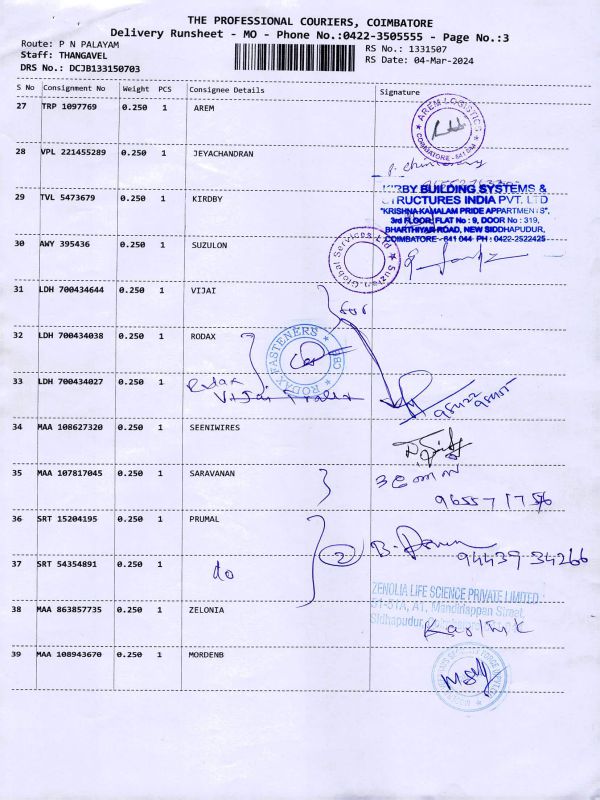 THE PROFESSIONAL COURIERS, COIMBATORE
Delivery Runsheet - MO - Phone No.:0422-3505555 - Page No.:3
Route: P N PALAYAM
Staff: THANGAVEL
DRS No.: DCJB133150703
RS No.: 1331507
RS Date: 04-Mar-2024
S No Consignment No Weight PCS Consignee Details Signature
27 TRP 1097769 0.250 1 AREM
AREM LOGISTICS
COIMBATORE - 641 044
28 VPL 221455289 0.250 1 JEYACHANDRAN
29 TVL 5473679 0.250 1 KIRDBY
KIRBY BUILDING SYSTEMS &
STRUCTURES INDIA PVT. LTD
"KRISHNA KAMALAM PRIDE APPARTMENTS",
3rd FLOOR, FLAT No : 9, DOOR No : 319,
BHARTHIYAR ROAD, NEW SIDDHAPUDUR,
COIMBATORE - 641 044 PH : 0422-2522425
30 AWY 395436 0.250 1 SUZULON
Suzlon Global Services Ltd
31 LDH 700434644 0.250 1 VIJAI
for
32 LDH 700434038 0.250 1 RODAX
RODAX FASTENERS
CBE
33 LDH 700434027 0.250 1
Rodax
Vijai
34 MAA 108627320 0.250 1 SEENIWIRES
35 MAA 107817045 0.250 1 SARAVANAN
36 SRT 15204195 0.250 1 PRUMAL
2
94439 34266
37 SRT 54354891 0.250 1 do
38 MAA 863857735 0.250 1 ZELONIA
ZENOLIA LIFE SCIENCE PRIVATE LIMITED
Karthik
39 MAA 108943670 0.250 1 MORDENB